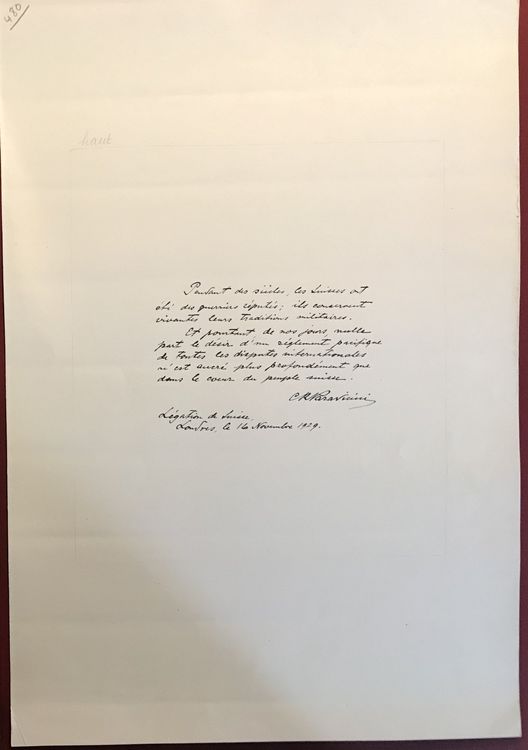 480
haut
Pendant des siècles, les Suisses ont
été des guerriers réputés; ils conservent
vivantes leurs traditions militaires.
Et pourtant de nos jours, nulle
part le désir d'un règlement pacifique
de toutes les disputes internationales
n'est ancré plus profondément que
dans le coeur du peuple suisse.
C R Paravicini
Légation de Suisse,
Londres, le 16 Novembre 1929.